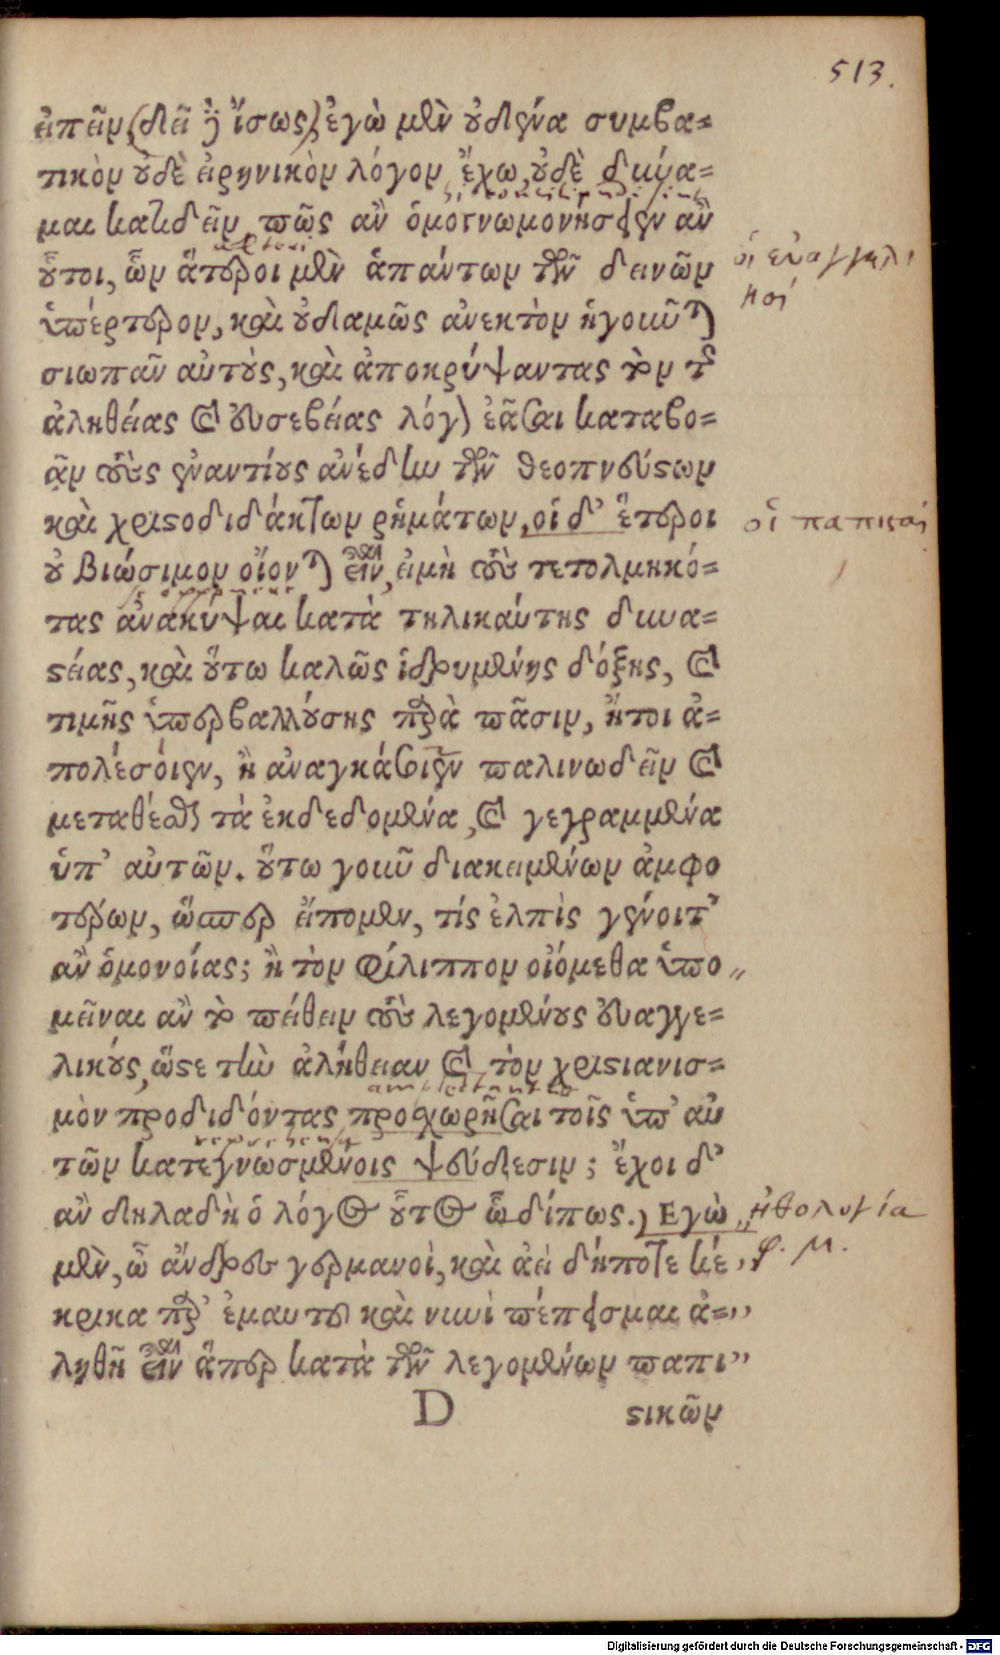 513.
εἰπεῖν, (δεῖ γὰρ ἴσως,) ἐγὼ μὲν οὐδένα συμβα=
τικὸν οὐδὲ εἰρηνικὸν λόγον ἔχω, οὐδὲ δύνα=
μαι κατιδεῖν, πῶς ἂν ὁμογνωμονήσειεν ἂν
οὗτοι, ὧν ἅτεροι μὲν ἁπάντων τῶν δεινῶν
οἱ εὐαγγελι
κοί
ὑπέρτερον, καὶ οὐδαμῶς ἀνεκτὸν ἡγοῦνται
σιωπᾶν αὐτοὺς, καὶ ἀποκρύψαντας τὸν τῆς
ἀληθείας καὶ εὐσεβείας λόγον ἐᾶσαι καταβο=
ᾶν τοὺς ἐναντίους ἀνέδην τῶν θεοπνεύστων
καὶ χριστοδιδάκτων ῥημάτων, οἱ δ' ἕτεροι
οἱ παπικοί
οὐ βιώσιμον οἴονται εἶναι, εἰ μὴ τοὺς τετολμηκό=
τας ἀνακύψαι κατὰ τηλικαύτης δυνα=
στείας, καὶ οὕτω καλῶς ἱδρυμένης δόξης, καὶ
τιμῆς ὑπερβαλλούσης παρὰ πᾶσιν, ἤτοι ἀ=
πολέσοιεν, ἢ ἀναγκάσοιεν παλινωδεῖν καὶ
μεταθέσθαι τὰ ἐκδεδομένα, καὶ γεγραμμένα
ὑπ' αὐτῶν. οὕτω γοῦν διακειμένων ἀμφο
τέρων, ὥσπερ εἴπομεν, τίς ἐλπὶς γένοιτ'
ἂν ὁμονοίας; ἢ τὸν Φίλιππον οἰόμεθα ὑπο
μεῖναι ἂν τὸ πείθειν τοὺς λεγομένους εὐαγγε=
λικούς, ὥστε τὴν ἀλήθειαν καὶ τὸν χριστιανισ=
amplectantes
μὸν προδιδόντας προσχωρῆσαι τοῖς ὑπ' αὐ
τῶν κατεγνωσμένοις ψεύδεσιν; ἔχοι δ'
ἂν δηλαδὴ ὁ λόγος οὗτος ὧδίπως.) Ἐγὼ
ἠθολογία
φ. μ.
μὲν, ὦ ἄνδρες γερμανοὶ, καὶ ἀεὶ δήποτε κέ
κρικα παρ' ἐμαυτῷ καὶ νυνὶ πέπεισμαι ἀ=
ληθῆ εἶναι ἅπερ κατὰ τῶν λεγομένων παπι
D στικῶν
Digitalisierung gefördert durch die Deutsche Forschungsgemeinschaft - DFG